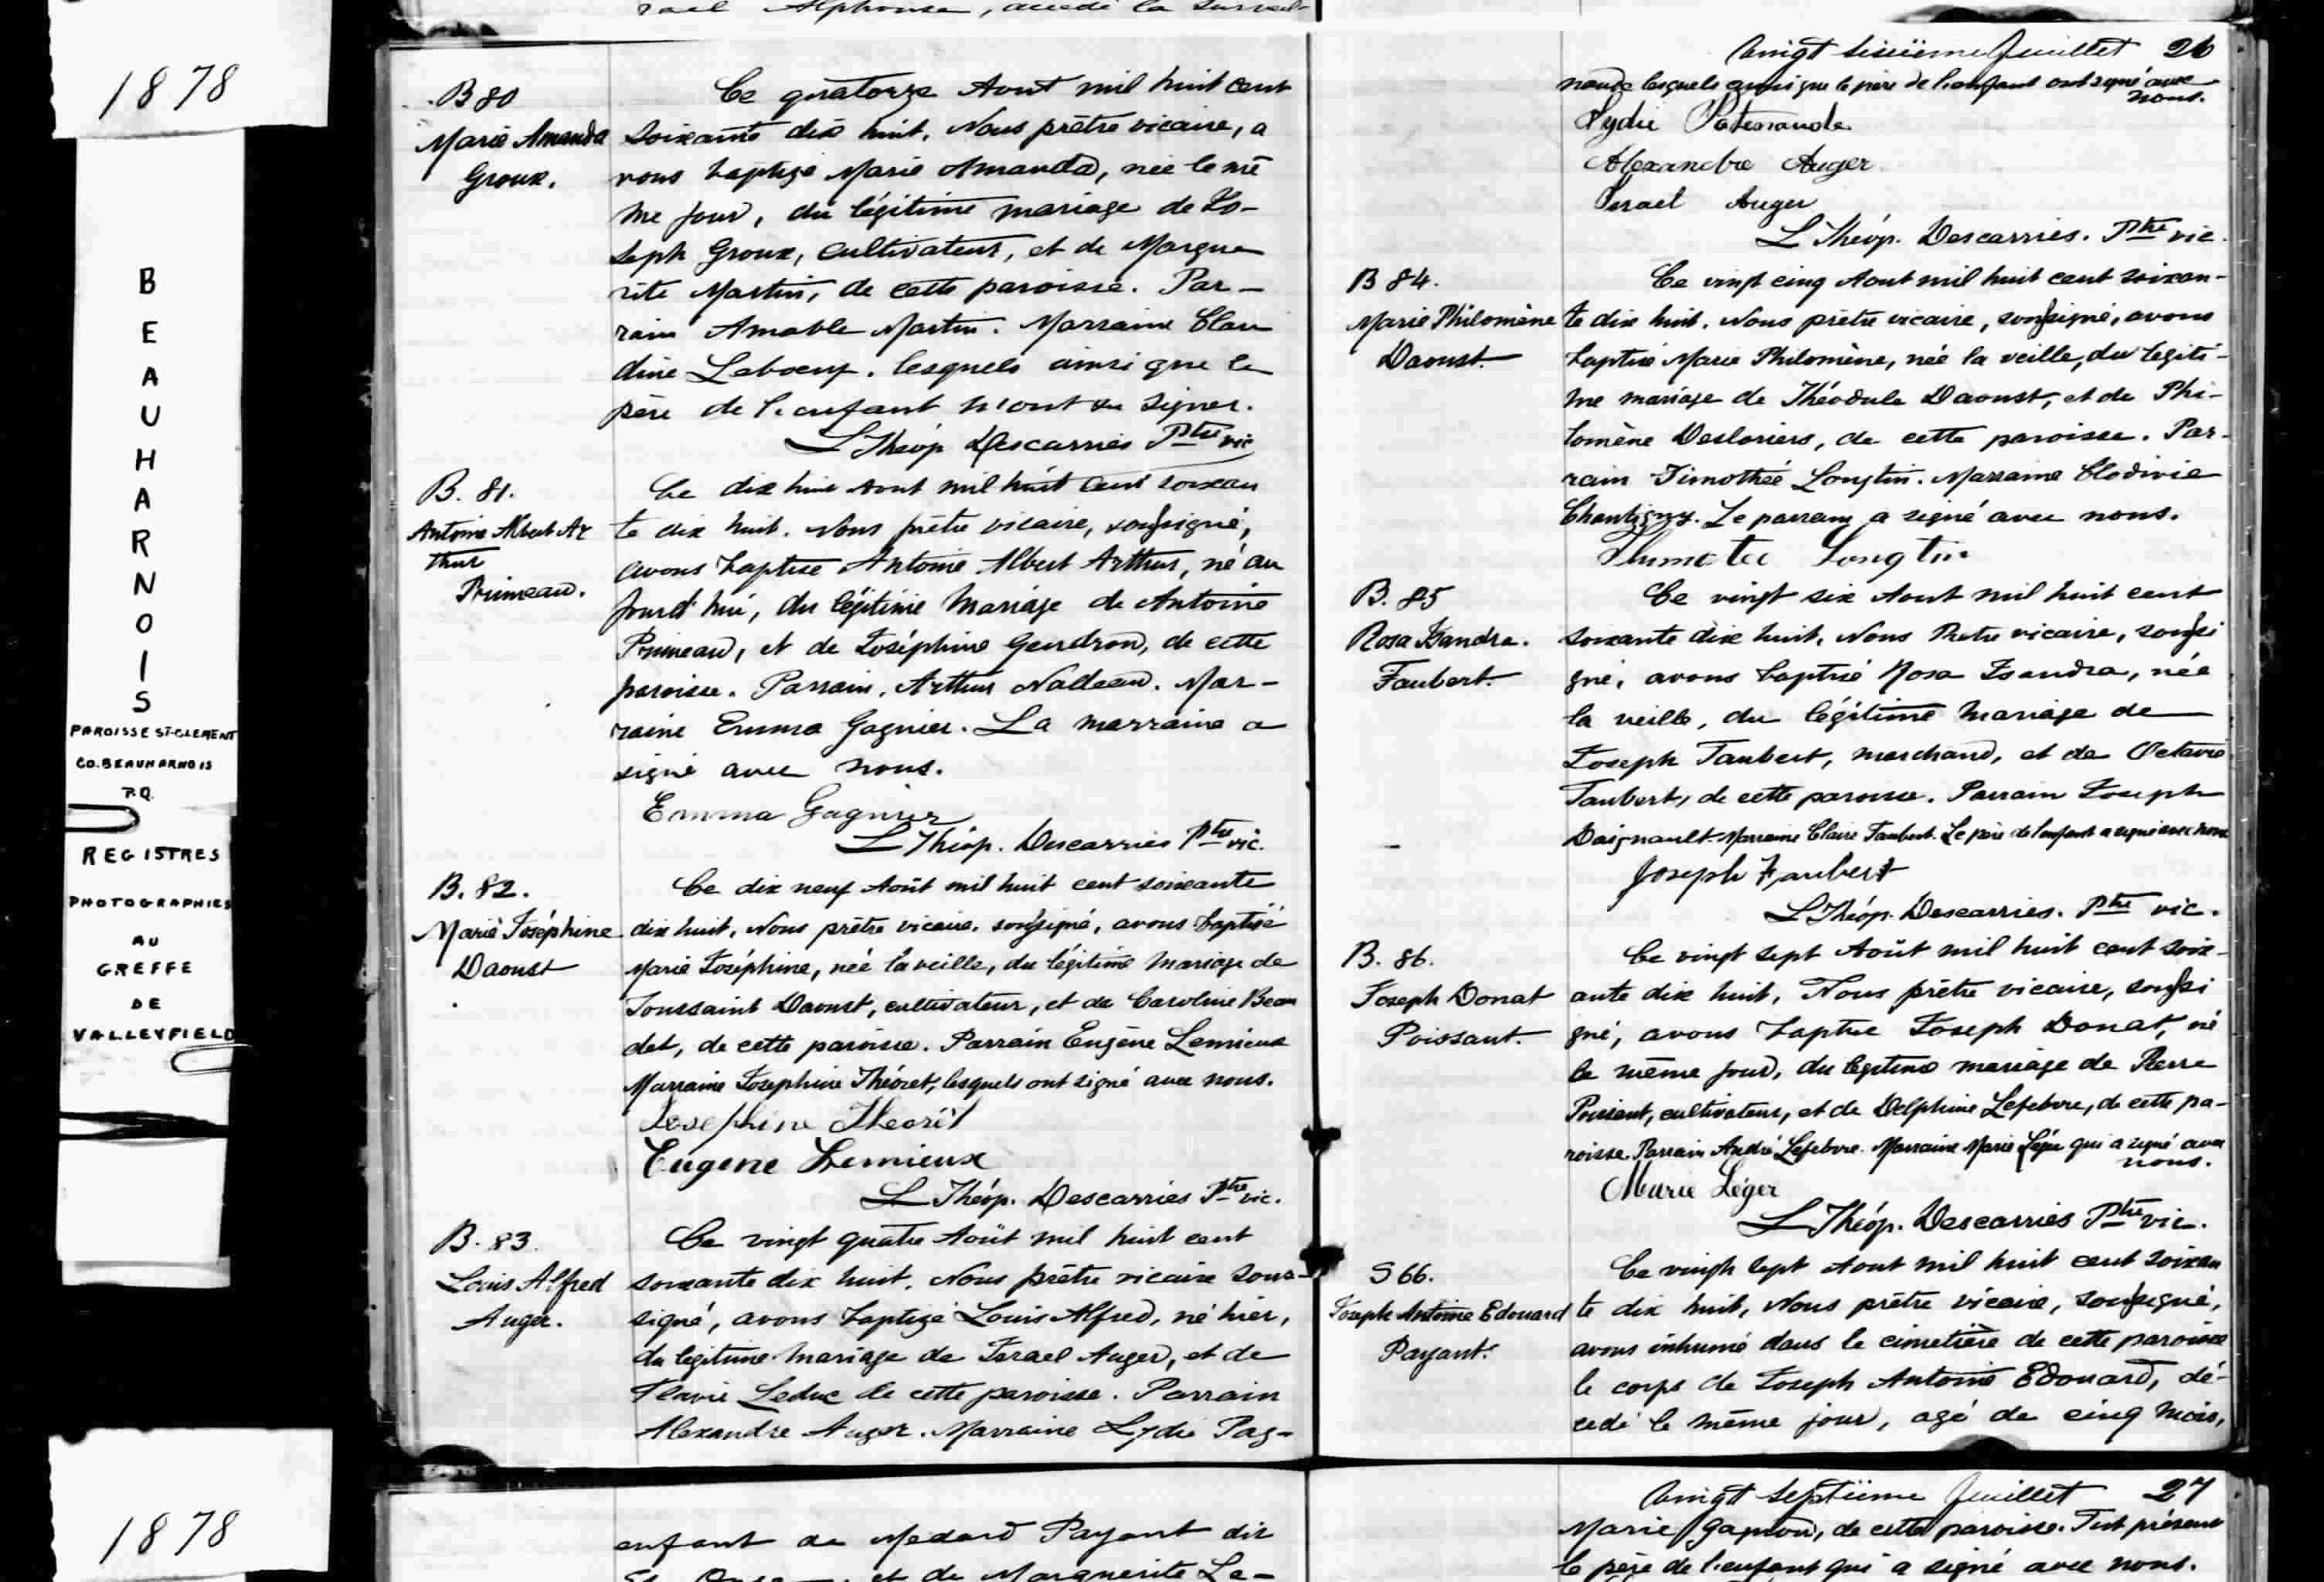 rael Alphonse, accdé la
1878
BEAUHARNOIS
PAROISSE ST-CLEMENT
CO. BEAUHARNOIS
P.Q.
REGISTRES
PHOTOGRAPHIES
AU
GREFFE
DE
VALLEYFIELD
1878
B 80
Marie Amanda
Groux.
Ce quatorze Aout mil huit cent
soixante dix huit, Nous prêtre vicaire, a
vons baptisé Marie Amanda, née le mê
me jour, du légitime mariage de Jo-
seph Groux, cultivateur, et de Margue
rite Martin, de cette paroisse. Par-
rain Amable Martin. Marraine Clau
dine Leboeuf. lesquels ainsi que le
père de l'enfant n'ont su signer.
L Théop Descarries Ptre vic
B. 81.
Antoine Albert Ar
thur
Primeau.
Ce dix huit Aout mil huit cent soixan
te dix huit. Nous prêtre vicaire, soussigné,
avons baptise Antoine Albert Arthur, né au
jourd'hui, du légitime mariage de Antoine
Primeau, et de Joséphine Gendron, de cette
paroisse. Parrain, Arthur Nadeau. Mar-
raine Emma Gagnier. La marraine a
signé avec nous.
Emma Gagnier
L Théop. Descarries Ptre vic.
B. 82.
Marie Joséphine
Daoust
Ce dix neuf Août mil huit cent soixante
dix huit, Nous prêtre vicaire, soussigné, avons baptisé
Marie Joséphine, née la veille, du légitime mariage de
Toussaint Daoust, cultivateur, et de Caroline Beau
det, de cette paroisse. Parrain Eugène Lemieux
Marraine Josephine Théoret, lesquels ont signé avec nous.
Josephine Theorêt
Eugene Lemieux
L Théop. Descarries Ptre vic.
B. 83.
Louis Alfred
Auger.
Ce vingt quatre Août mil huit cent
soixante dix huit, Nous prêtre vicaire sous-
signé, avons baptizé Louis Alfred, né hier,
du legitime mariage de Israel Auger, et de
Flavie Leduc de cette paroisse. Parrain
Alexandre Auger. Marraine Lydie
enfant de Medard Payant dit
St Onge, et de Marguerite Le-
Vingt sixième Juillet 26
naude lesquels ainsi que le père de l'enfant ont signé avec
nous.
Lydie Patenaude
Alexandre Auger
Israel Auger
L Théop. Descarries. Ptre vic.
B 84.
Marie Philomène
Daoust.
Ce vingt cinq Aout mil huit cent soixan-
te dix huit. Nous prêtre vicaire, soussigné, avons
baptisé Marie Philomène, née la veille, du légiti-
me mariage de Théodule Daoust, et de Phi-
lomène Desloriers, de cette paroisse. Par-
rain Timothée Longtin. Marraine Clodivie
Chantigny. Le parrain a signé avec nous.
Longtin
B. 85
Rosa Isandra.
Faubert.
Ce vingt six Aout mil huit cent
soixante dix huit, Nous Pretre vicaire, soussi
gné, avons baptisé Rosa Isandra, née
la veille, du légitime mariage de
Joseph Faubert, marchand, et de Octavie
Faubert, de cette paroisse. Parrain Joseph
Daignault. Marraine Claire Faubert. Le père de l'enfant a signé avec nous
Joseph Faubert
L Théop. Descarries. Ptre vic.
B. 86.
Joseph Donat
Poissant.
Ce vingt sept Août mil huit cent soix-
ante dix huit, Nous prêtre vicaire, soussi
gné, avons baptisé Joseph Donat, né
le même jour, du legitime mariage de Pierre
Poissant, cultivateur, et de Delphine Lefebvre, de cette pa-
roisse. Parrain André Lefebvre. Marraine Marie Léger qui a signé avec
nous.
Marie Léger
L Théop. Descarries Ptre vic.
S 66.
Joseph Antoine Edouard
Payant.
Ce vingt sept Aout mil huit cent soixan
te dix huit, Nous prêtre vicaire, soussigné,
avons inhumé dans le cimetière de cette paroisse
le corps de Joseph Antoine Edouard, dé-
cedé le même jour, agé de cinq mois,
Vingt septième Juillet 27
Marie Gagnon, de cette paroisse. Fut présent
le père de l'enfant qui a signé avec nous.